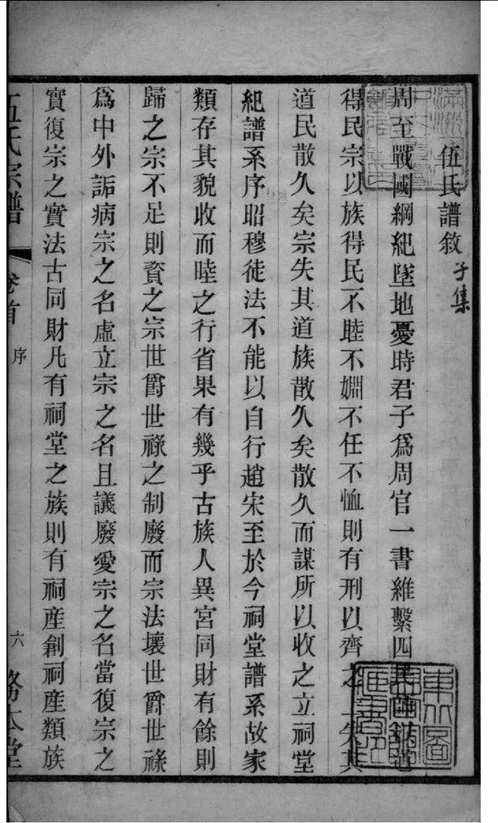 伍氏譜敘
子集
周至戰國綱紀墜地憂時君子爲周官一書維繫四
得民宗以族得民不睦不婣不任不恤則有刑以齊之
道民散久矣宗失其道族散久矣散久而謀所以收之立祠堂
紀譜系序昭穆徒法不能以自行趙宋至於今祠堂譜系故家
類存其貌收而睦之行省果有幾乎古族人異宮同財有餘則
歸之宗不足則資之宗世爵世祿之制廢而宗法壞世爵世祿
爲中外詬病宗之名虛立宗之名且議廢愛宗之名當復宗之
實復宗之實法古同財凡有祠堂之族則有祠產創祠產類族
伍氏宗譜
卷首
序
六
務本堂